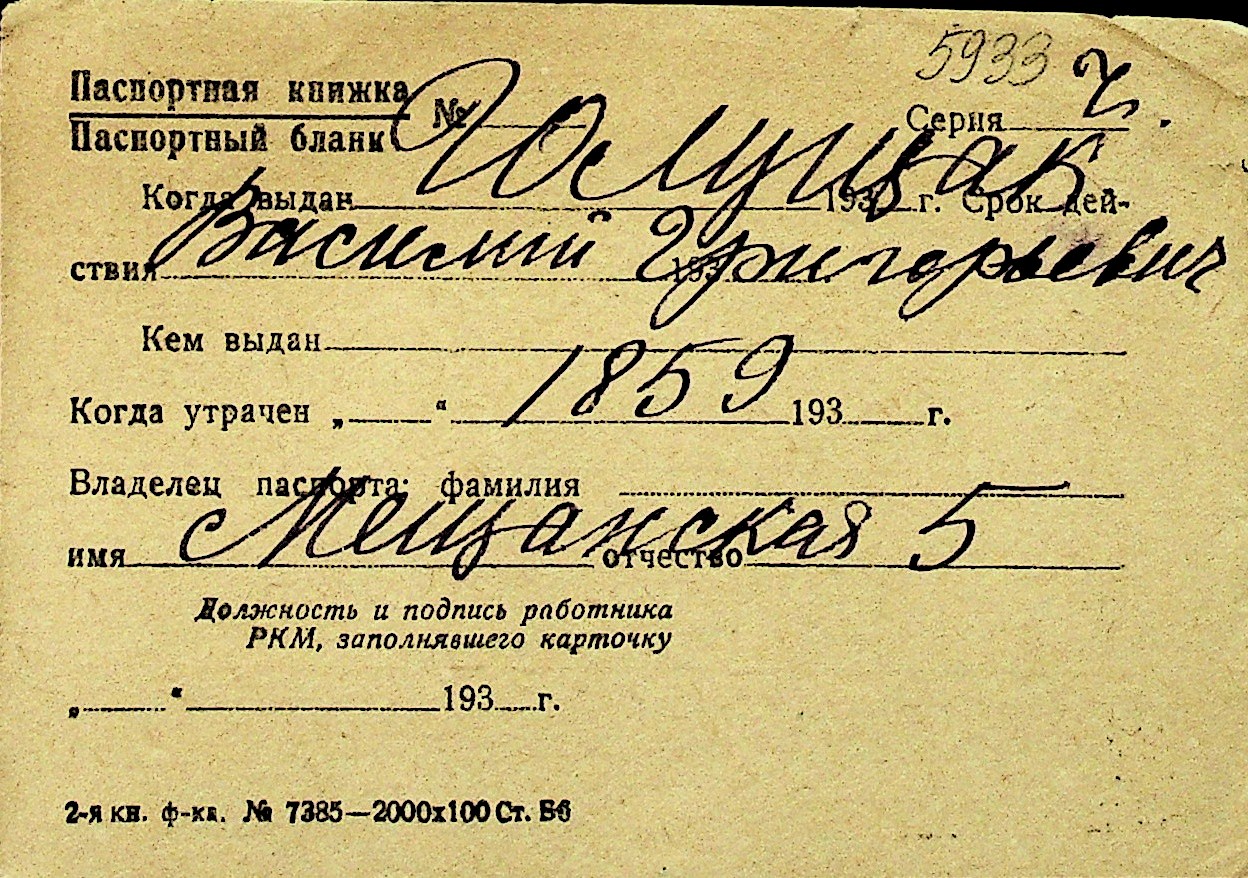 5933 г
Паспортная книжка
Паспортный бланк № Серия
Когда выдан 193 г. Срок дей-
ствия 193
Василий Григорьевич
Кем выдан
1859
Когда утрачен „ “ 193 г.
Владелец паспорта: фамилия
Мещанская 5
имя отчество
Должность и подпись работника
РКМ, заполнявшего карточку
„ “ 193 г.
2-я кн. ф-ка. № 7385—2000х100 Ст. Бб